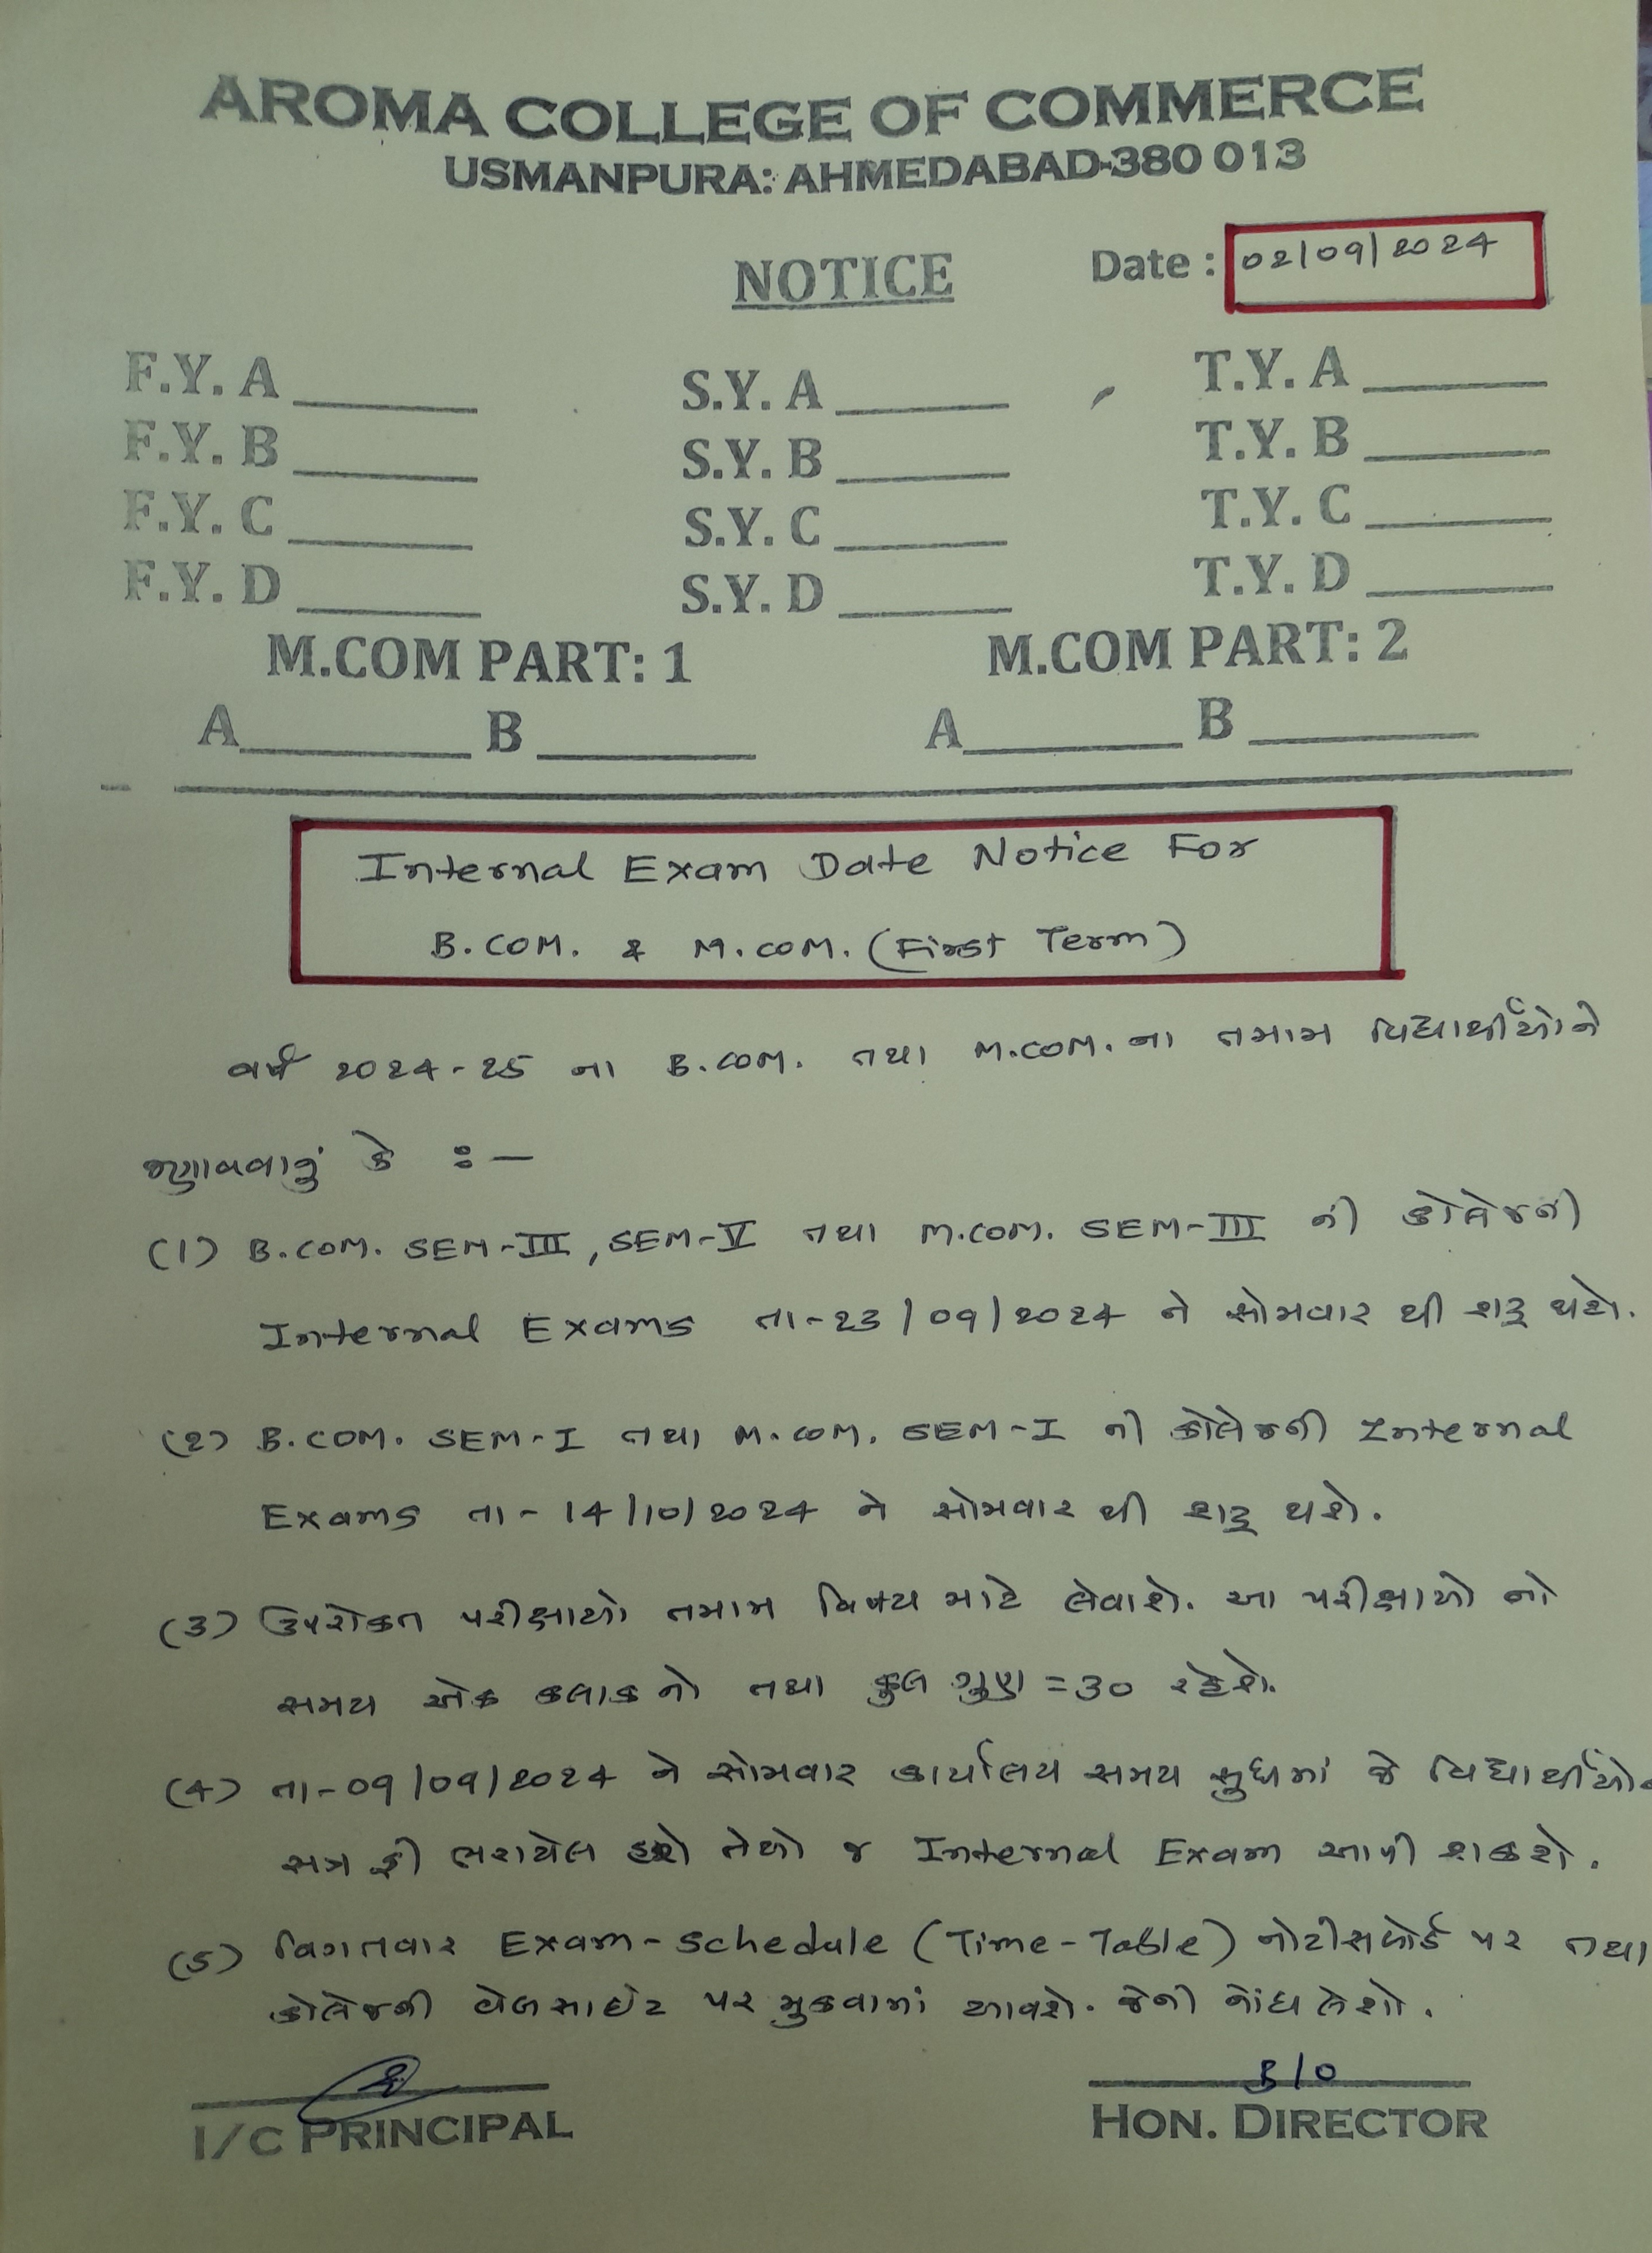 AROMA COLLEGE OF COMMERCE
USMANPURA: AHMEDABAD-380 013
NOTICE Date : 02/09/2024
F.Y. A ______ S.Y. A ______ T.Y. A ______
F.Y. B ______ S.Y. B ______ T.Y. B ______
F.Y. C ______ S.Y. C ______ T.Y. C ______
F.Y. D ______ S.Y. D ______ T.Y. D ______
M.COM PART: 1 M.COM PART: 2
A______ B______ A______ B______
Internal Exam Date Notice For
B.COM. & M.COM. (First Term)
વર્ષ 2024-25 ના B.COM. તથા M.COM. ના તમામ વિદ્યાર્થીઓને
જણાવવાનું કે :-
(1) B.COM. SEM-III, SEM-V તથા M.COM. SEM-III ની કોલેજની
Internal Exams તા-23/09/2024 ને સોમવાર થી શરૂ થશે.
(2) B.COM. SEM-I તથા M.COM. SEM-I ની કોલેજની Internal
Exams તા-14/10/2024 ને સોમવાર થી શરૂ થશે.
(3) ઉપરોક્ત પરીક્ષાઓ તમામ વિષય માટે લેવાશે. આ પરીક્ષાઓ નો
સમય એક કલાકનો તથા કુલ ગુણ = 30 રહેશે.
(4) તા-09/09/2024 ને સોમવાર કાર્યાલય સમય સુધીમાં જે વિદ્યાર્થીઓની
સત્ર ફી ભરાયેલ હશે તેઓ જ Internal Exam આપી શકશે.
(5) વિગતવાર Exam-Schedule (Time-Table) નોટીસબોર્ડ પર તથા
કોલેજની વેબસાઈટ પર મુકવામાં આવશે. જેની નોંધ લેશો.
I/C PRINCIPAL HON. DIRECTOR